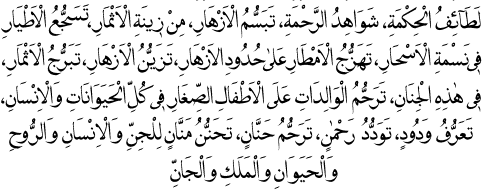 لَطَائِفُ الْحِكْمَةِ، شَوَاهِدُ الرَّحْمَةِ، تَبَسُّمُ الْاَزْهَارِ، مِنْ زِينَةِ الْاَثْمَارِ، تَسَجُّعُ الْاَطْيَارِ
فِى نَسْمَةِ الْاَسْحَارِ، تَهَزُّجُ الْاَمْطَارِ عَلٰى خُدُودِ الْاَزْهَارِ، تَزَيُّنُ الْاَزْهَارِ، تَبَرُّجُ الْاَثْمَارِ،
فِى هٰذِهِ الْجِنَانِ، تَرَحُّمُ الْوَالِدَاتِ عَلَى الْاَطْفَالِ الصِّغَارِ فِى كُلِّ الْحَيَوَانَاتِ وَالْاِنْسَانِ،
تَعَرُّفُ وَدُودٍ، تَوَدُّدُ رَحْمٰنٍ، تَرَحُّمُ حَنَّانٍ، تَحَنُّنُ مَنَّانٍ لِلْجِنِّ وَالْاِنْسَانِ وَالرُّوحِ
وَالْحَيَوَانِ وَالْمَلَكِ وَالْجَانِّ